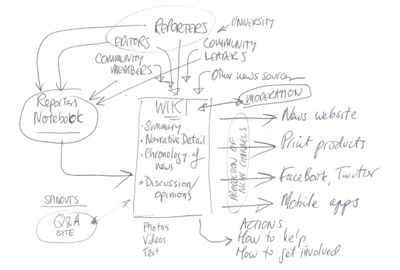 REPORTERS
UNIVERSITY
EDITORS
COMMUNITY
MEMBERS
COMMUNITY
LEADERS
Other news sources
MODERATION
Reporters
Notebook
WIKI
• Summary
• Narrative Detail
• Chronology of
news
• Discussion/
opinions
PRODUCTION OF
CHANNELS
News website
Print products
FaceBook, Twitter
Mobile apps
SPINOUTS
Q&A
SITE
Photos
Videos
Text
ACTIONS
How to help
How to get involved